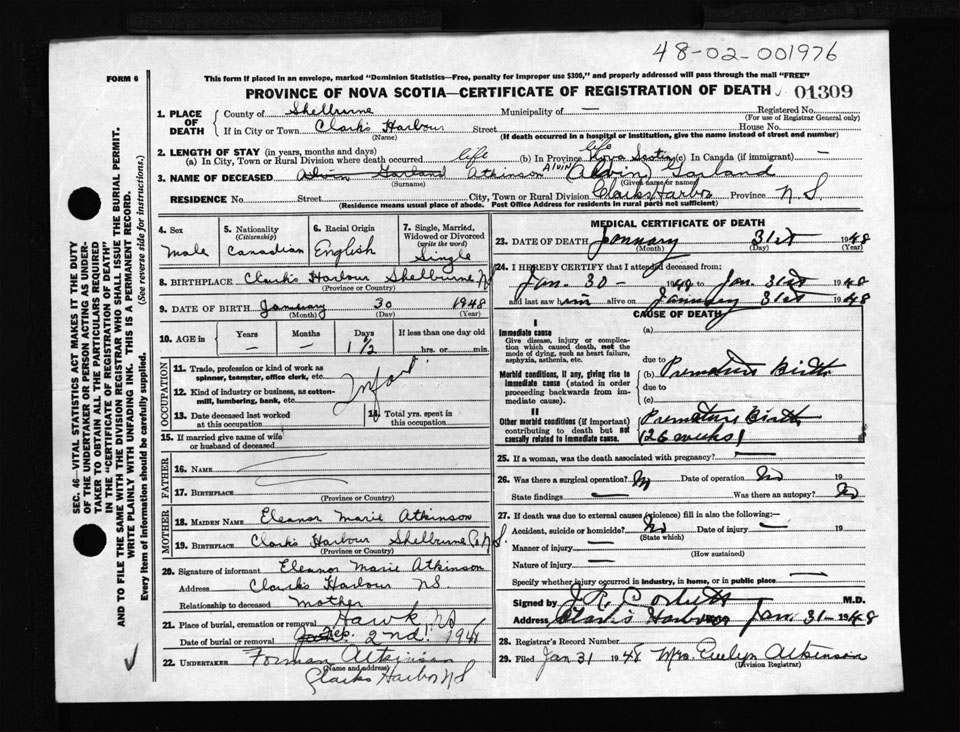 48-02-001976
FORM 6
This form if placed in an envelope, marked "Dominion Statistics—Free, penalty for improper use $300," and properly addressed will pass through the mail "FREE"
PROVINCE OF NOVA SCOTIA—CERTIFICATE OF REGISTRATION OF DEATH 01309
1. PLACE OF DEATH County of Shelburne Municipality of — Registered No.
(For use of Registrar General only)
If in City or Town Clark's Harbour Street House No.
(Name) (If death occurred in a hospital or institution, give the name instead of street and number)
2. LENGTH OF STAY (in years, months and days)
(a) In City, Town or Rural Division where death occurred life (b) In Province life Nova Scotia (c) In Canada (if immigrant) —
3. NAME OF DECEASED Alvin Garland Atkinson ALVIN (Alvin) Garland
(Surname) (Given name or names)
RESIDENCE No. Street City, Town or Rural Division Clarks Harbor Province N.S.
(Residence means usual place of abode. Post Office Address for residents in rural parts not sufficient)
4. Sex
Male
5. Nationality
(Citizenship)
Canadian
6. Racial Origin
English
7. Single, Married, Widowed or Divorced
(write the word)
Single
8. BIRTHPLACE Clark's Harbour Shelburne NS
(Province or Country)
9. DATE OF BIRTH January 30 1948
(Month) (Day) (Year)
10. AGE in Years Months Days If less than one day old
— — 1 1/2 hrs. or min.
OCCUPATION
11. Trade, profession or kind of work as spinner, teamster, office clerk, etc.
12. Kind of industry or business, as cotton-mill, lumbering, bank, etc.
Infant
13. Date deceased last worked at this occupation
14. Total yrs. spent in this occupation
15. If married give name of wife or husband of deceased
FATHER
16. NAME
17. BIRTHPLACE
(Province or Country)
MOTHER
18. MAIDEN NAME Eleanor Marie Atkinson
19. BIRTHPLACE Clark's Harbour Shelburne Co N.S.
(Province or Country)
20. Signature of informant Eleanor Marie Atkinson
Address Clark's Harbour NS.
Relationship to deceased Mother
21. Place of burial, cremation or removal Hawk NS
Date of burial or removal Feb. 2nd. 1948
22. UNDERTAKER Forman Atkinson
(Name and address)
Clarks Harbor NS
MEDICAL CERTIFICATE OF DEATH
23. DATE OF DEATH January 31st 1948
(Month) (Day) (Year)
24. I HEREBY CERTIFY that I attended deceased from:
Jan. 30 - 1948 to Jan. 31st 1948
and last saw him alive on January 31st 1948
CAUSE OF DEATH
I
Immediate cause (a)
Give disease, injury or complication which caused death, not the mode of dying, such as heart failure, asphyxia, asthenia, etc.
due to
Morbid conditions, if any, giving rise to immediate cause (stated in order proceeding backwards from immediate).
(b) Premature Birth
due to
(c)
II
Other morbid conditions (if important) contributing to death but not causally related to immediate cause.
Premature Birth
(26 weeks)
25. If a woman, was the death associated with pregnancy? —
26. Was there a surgical operation? No Date of operation No 19
State findings — Was there an autopsy? No
27. If death was due to external causes (violence) fill in also the following:—
Accident, suicide or homicide? No Date of injury — 19
(State which)
Manner of injury —
(How sustained)
Nature of injury —
Specify whether injury occurred in industry, in home, or in public place —
Signed by M.D.
Address Clark's Harbour Jan. 31 - 1948
28. Registrar's Record Number
29. Filed Jan 31 1948 Mrs. Evelyn Atkinson
(Division Registrar)
SEC. 46—VITAL STATISTICS ACT MAKES IT THE DUTY
OF THE UNDERTAKER OR PERSON ACTING AS UNDER-
TAKER TO OBTAIN ALL THE PARTICULARS REQUIRED
IN THE "CERTIFICATE OF REGISTRATION OF DEATH"
AND TO FILE THE SAME WITH THE DIVISION REGISTRAR WHO SHALL ISSUE THE BURIAL PERMIT.
WRITE PLAINLY WITH UNFADING INK. THIS IS A PERMANENT RECORD.
Every item of information should be carefully supplied. (See reverse side for instructions.)